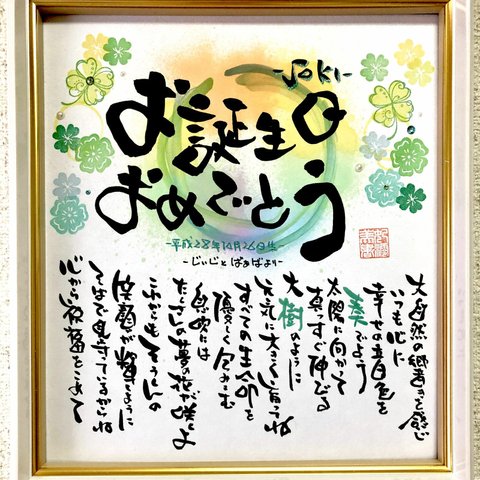 -Soki-
お誕生日
おめでとう
-平成28年10月26日生-
-じいじと ばぁばより-
大自然の響きを感じ
いつも心に
幸せの音色を
奏でよう
太陽に向かって
真っすぐ伸びる
大樹のように
元気に大きく育ってね
すべての生命を
優しく包みこむ
息吹には
たくさんの夢の花が咲くよ
これからもそうくんの
笑顔が輝くように
そばで見守っているからね
心から祝福をこめて